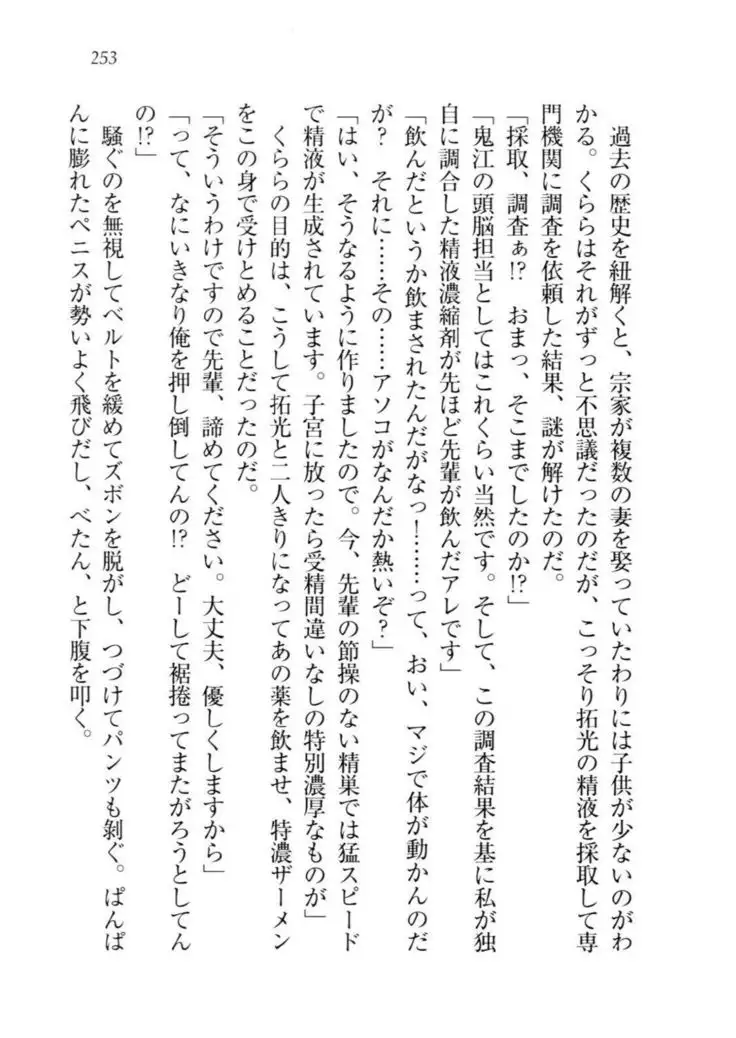 253
過去の歴史を紐解くと、宗家が複数の妻を娶っていたわりには子供が少ないのがわ
かる。くららはそれがずっと不思議だったのだが、こっそり拓光の精液を採取して専
門機関に調査を依頼した結果、謎が解けたのだ。
「採取、調査ぁ!?　おまっ、そこまでしたのか!?」
「鬼江の頭脳担当としてはこれくらい当然です。そして、この調査結果を基に私が独
自に調合した精液濃縮剤が先ほど先輩が飲んだアレです」
「飲んだというか飲まされたんだがなっ！……って、おい、マジで体が動かんのだ
が？　それに……その……アソコがなんだか熱いぞ？」
「はい、そうなるように作りましたので。今、先輩の節操のない精巣では猛スピード
で精液が生成されています。子宮に放ったら受精間違いなしの特別濃厚なものが」
くららの目的は、こうして拓光と二人きりになってあの薬を飲ませ、特濃ザーメン
をこの身で受けとめることだったのだ。
「そういうわけですので先輩、諦めてください。大丈夫、優しくしますから」
「って、なにいきなり俺を押し倒してんの!?　どーして裾捲ってまたがろうとしてん
の!?」
騒ぐのを無視してベルトを緩めてズボンを脱がし、つづけてパンツも剝ぐ。ぱんぱ
んに膨れたペニスが勢いよく飛びだし、べたん、と下腹を叩く。